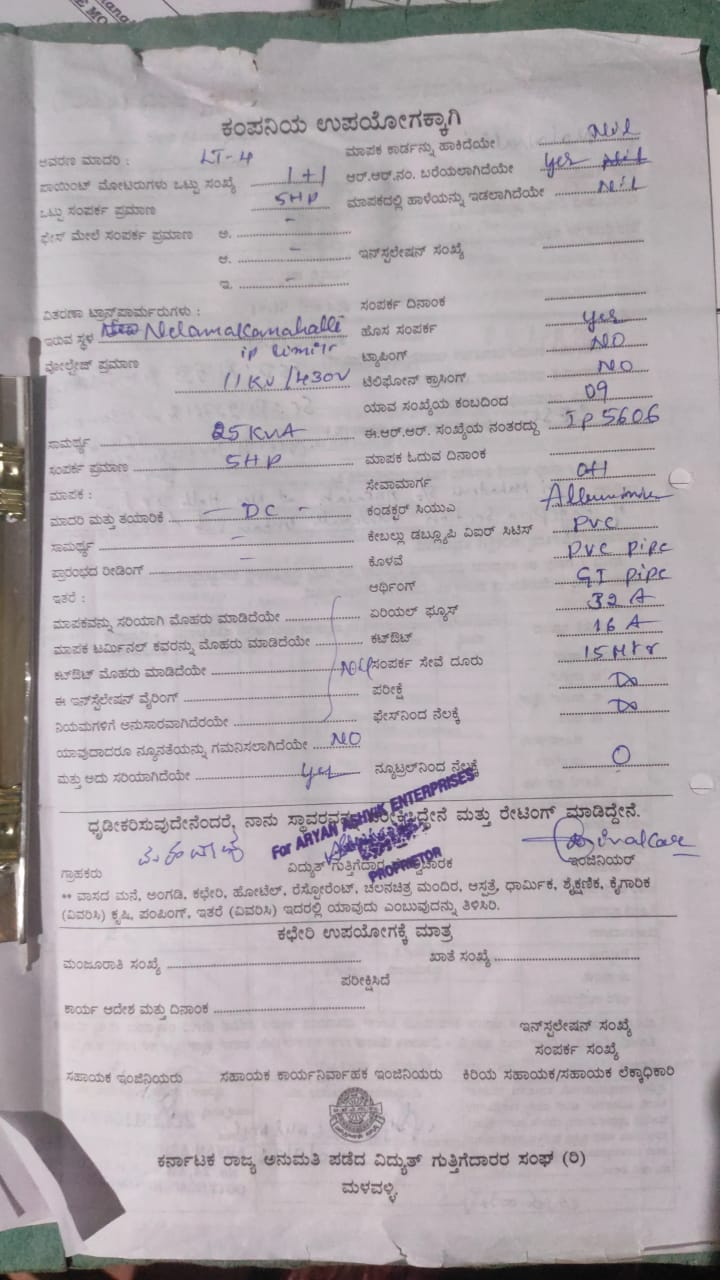 ಕಂಪನಿಯ ಉಪಯೋಗಕ್ಕಾಗಿ
ಆವರಣ ಮಾದರಿ : LT-4
ಪಾಯಿಂಟ್ ಮೋಟರುಗಳು ಒಟ್ಟು ಸಂಖ್ಯೆ 1+1
ಒಟ್ಟು ಸಂಪರ್ಕ ಪ್ರಮಾಣ 5HP
ಫೇಸ್ ಮೇಲೆ ಸಂಪರ್ಕ ಪ್ರಮಾಣ ಅ. –
ಆ. –
ಇ. –
ವಿತರಣಾ ಟ್ರಾನ್ಸ್‌ಫಾರ್ಮರುಗಳು :
ಇರುವ ಸ್ಥಳ Nelamakanahalli
ip limit
ವೋಲ್ಟೇಜ್ ಪ್ರಮಾಣ 11KV/430V
ಸಾಮರ್ಥ್ಯ 25KVA
ಸಂಪರ್ಕ ಪ್ರಮಾಣ 5HP
ಮಾಪಕ :
ಮಾದರಿ ಮತ್ತು ತಯಾರಿಕೆ – DC –
ಸಾಮರ್ಥ್ಯ –
ಪ್ರಾರಂಭದ ರೀಡಿಂಗ್ –
ಇತರೆ :
ಮಾಪಕವನ್ನು ಸರಿಯಾಗಿ ಮೊಹರು ಮಾಡಿದೆಯೇ
ಮಾಪಕ ಟರ್ಮಿನಲ್ ಕವರನ್ನು ಮೊಹರು ಮಾಡಿದೆಯೇ
ಕಟ್‌ಔಟ್ ಮೊಹರು ಮಾಡಿದೆಯೇ Nil
ಈ ಇನ್‌ಸ್ಟಲೇಷನ್ ವೈರಿಂಗ್
ನಿಯಮಗಳಿಗೆ ಅನುಸಾರವಾಗಿದೆರಯೇ
ಯಾವುದಾದರೂ ನ್ಯೂನತೆಯನ್ನು ಗಮನಿಸಲಾಗಿದೆಯೇ NO
ಮತ್ತು ಅದು ಸರಿಯಾಗಿದೆಯೇ yes
ಮಾಪಕ ಕಾರ್ಡನ್ನು ಹಾಕಿದೆಯೇ Nil
ಆರ್.ಆರ್.ನಂ. ಬರೆಯಲಾಗಿದೆಯೇ yes
ಮಾಪಕದಲ್ಲಿ ಹಾಳೆಯನ್ನು ಇಡಲಾಗಿದೆಯೇ Nil
ಇನ್‌ಸ್ಟಲೇಷನ್ ಸಂಖ್ಯೆ
ಸಂಪರ್ಕ ದಿನಾಂಕ
ಹೊಸ ಸಂಪರ್ಕ yes
ಟ್ಯಾಪಿಂಗ್ NO
ಟೆಲಿಫೋನ್ ಕ್ರಾಸಿಂಗ್ NO
ಯಾವ ಸಂಖ್ಯೆಯ ಕಂಬದಿಂದ 09
ಈ.ಆರ್.ಆರ್. ಸಂಖ್ಯೆಯ ನಂತರದ್ದು IP5606
ಮಾಪಕ ಓದುವ ದಿನಾಂಕ
ಸೇವಾಮಾರ್ಗ OH
ಕಂಡಕ್ಟರ್ ಸಿಯುಎ
ಕೇಬಲ್ಲು ಡಬ್ಲ್ಯೂಪಿ ವಿಐರ್ ಸಿಟಿಸ್ PVC
ಕೊಳವೆ PVC pipe
ಆರ್ಥಿಂಗ್ GI pipe
ಏರಿಯಲ್ ಫ್ಯೂಸ್ 32 A
ಕಟ್‌ಔಟ್ 16 A
ಸಂಪರ್ಕ ಸೇವೆ ದೂರು 15 Mtr
ಪರೀಕ್ಷೆ
ಫೇಸ್‌ನಿಂದ ನೆಲಕ್ಕೆ
ನ್ಯೂಟ್ರಲ್‌ನಿಂದ ನೆಲಕ್ಕೆ 0
ಧೃಡೀಕರಿಸುವುದೇನೆಂದರೆ, ನಾನು ಸ್ಥಾವರವನ್ನು ಪರೀಕ್ಷಿಸಿದ್ದೇನೆ ಮತ್ತು ರೇಟಿಂಗ್ ಮಾಡಿದ್ದೇನೆ.
For ARYAN ASHVIK ENTERPRISES
PROPRIETOR
ಗ್ರಾಹಕರು ವಿದ್ಯುತ್ ಗುತ್ತಿಗೆದಾರ ಇಂಜಿನಿಯರ್
** ವಾಸದ ಮನೆ, ಅಂಗಡಿ, ಕಛೇರಿ, ಹೋಟೆಲ್, ರೆಸ್ಟೋರೆಂಟ್, ಚಲನಚಿತ್ರ ಮಂದಿರ, ಆಸ್ಪತ್ರೆ, ಧಾರ್ಮಿಕ, ಶೈಕ್ಷಣಿಕ, ಕೈಗಾರಿಕೆ
(ವಿವರಿಸಿ) ಕೃಷಿ, ಪಂಪಿಂಗ್, ಇತರೆ (ವಿವರಿಸಿ) ಇದರಲ್ಲಿ ಯಾವುದು ಎಂಬುವುದನ್ನು ತಿಳಿಸಿರಿ.
ಕಛೇರಿ ಉಪಯೋಗಕ್ಕೆ ಮಾತ್ರ
ಮಂಜೂರಾತಿ ಸಂಖ್ಯೆ ಖಾತೆ ಸಂಖ್ಯೆ
ಪರೀಕ್ಷಿಸಿದೆ
ಕಾರ್ಯ ಆದೇಶ ಮತ್ತು ದಿನಾಂಕ
ಇನ್‌ಸ್ಟಲೇಷನ್ ಸಂಖ್ಯೆ
ಸಂಪರ್ಕ ಸಂಖ್ಯೆ
ಸಹಾಯಕ ಇಂಜಿನಿಯರು ಸಹಾಯಕ ಕಾರ್ಯನಿರ್ವಾಹಕ ಇಂಜಿನಿಯರು ಕಿರಿಯ ಸಹಾಯಕ/ಸಹಾಯಕ ಲೆಕ್ಕಾಧಿಕಾರಿ
ಕರ್ನಾಟಕ ರಾಜ್ಯ ಅನುಮತಿ ಪಡೆದ ವಿದ್ಯುತ್ ಗುತ್ತಿಗೆದಾರರ ಸಂಘ (ರಿ)
ಮಳವಳ್ಳಿ.